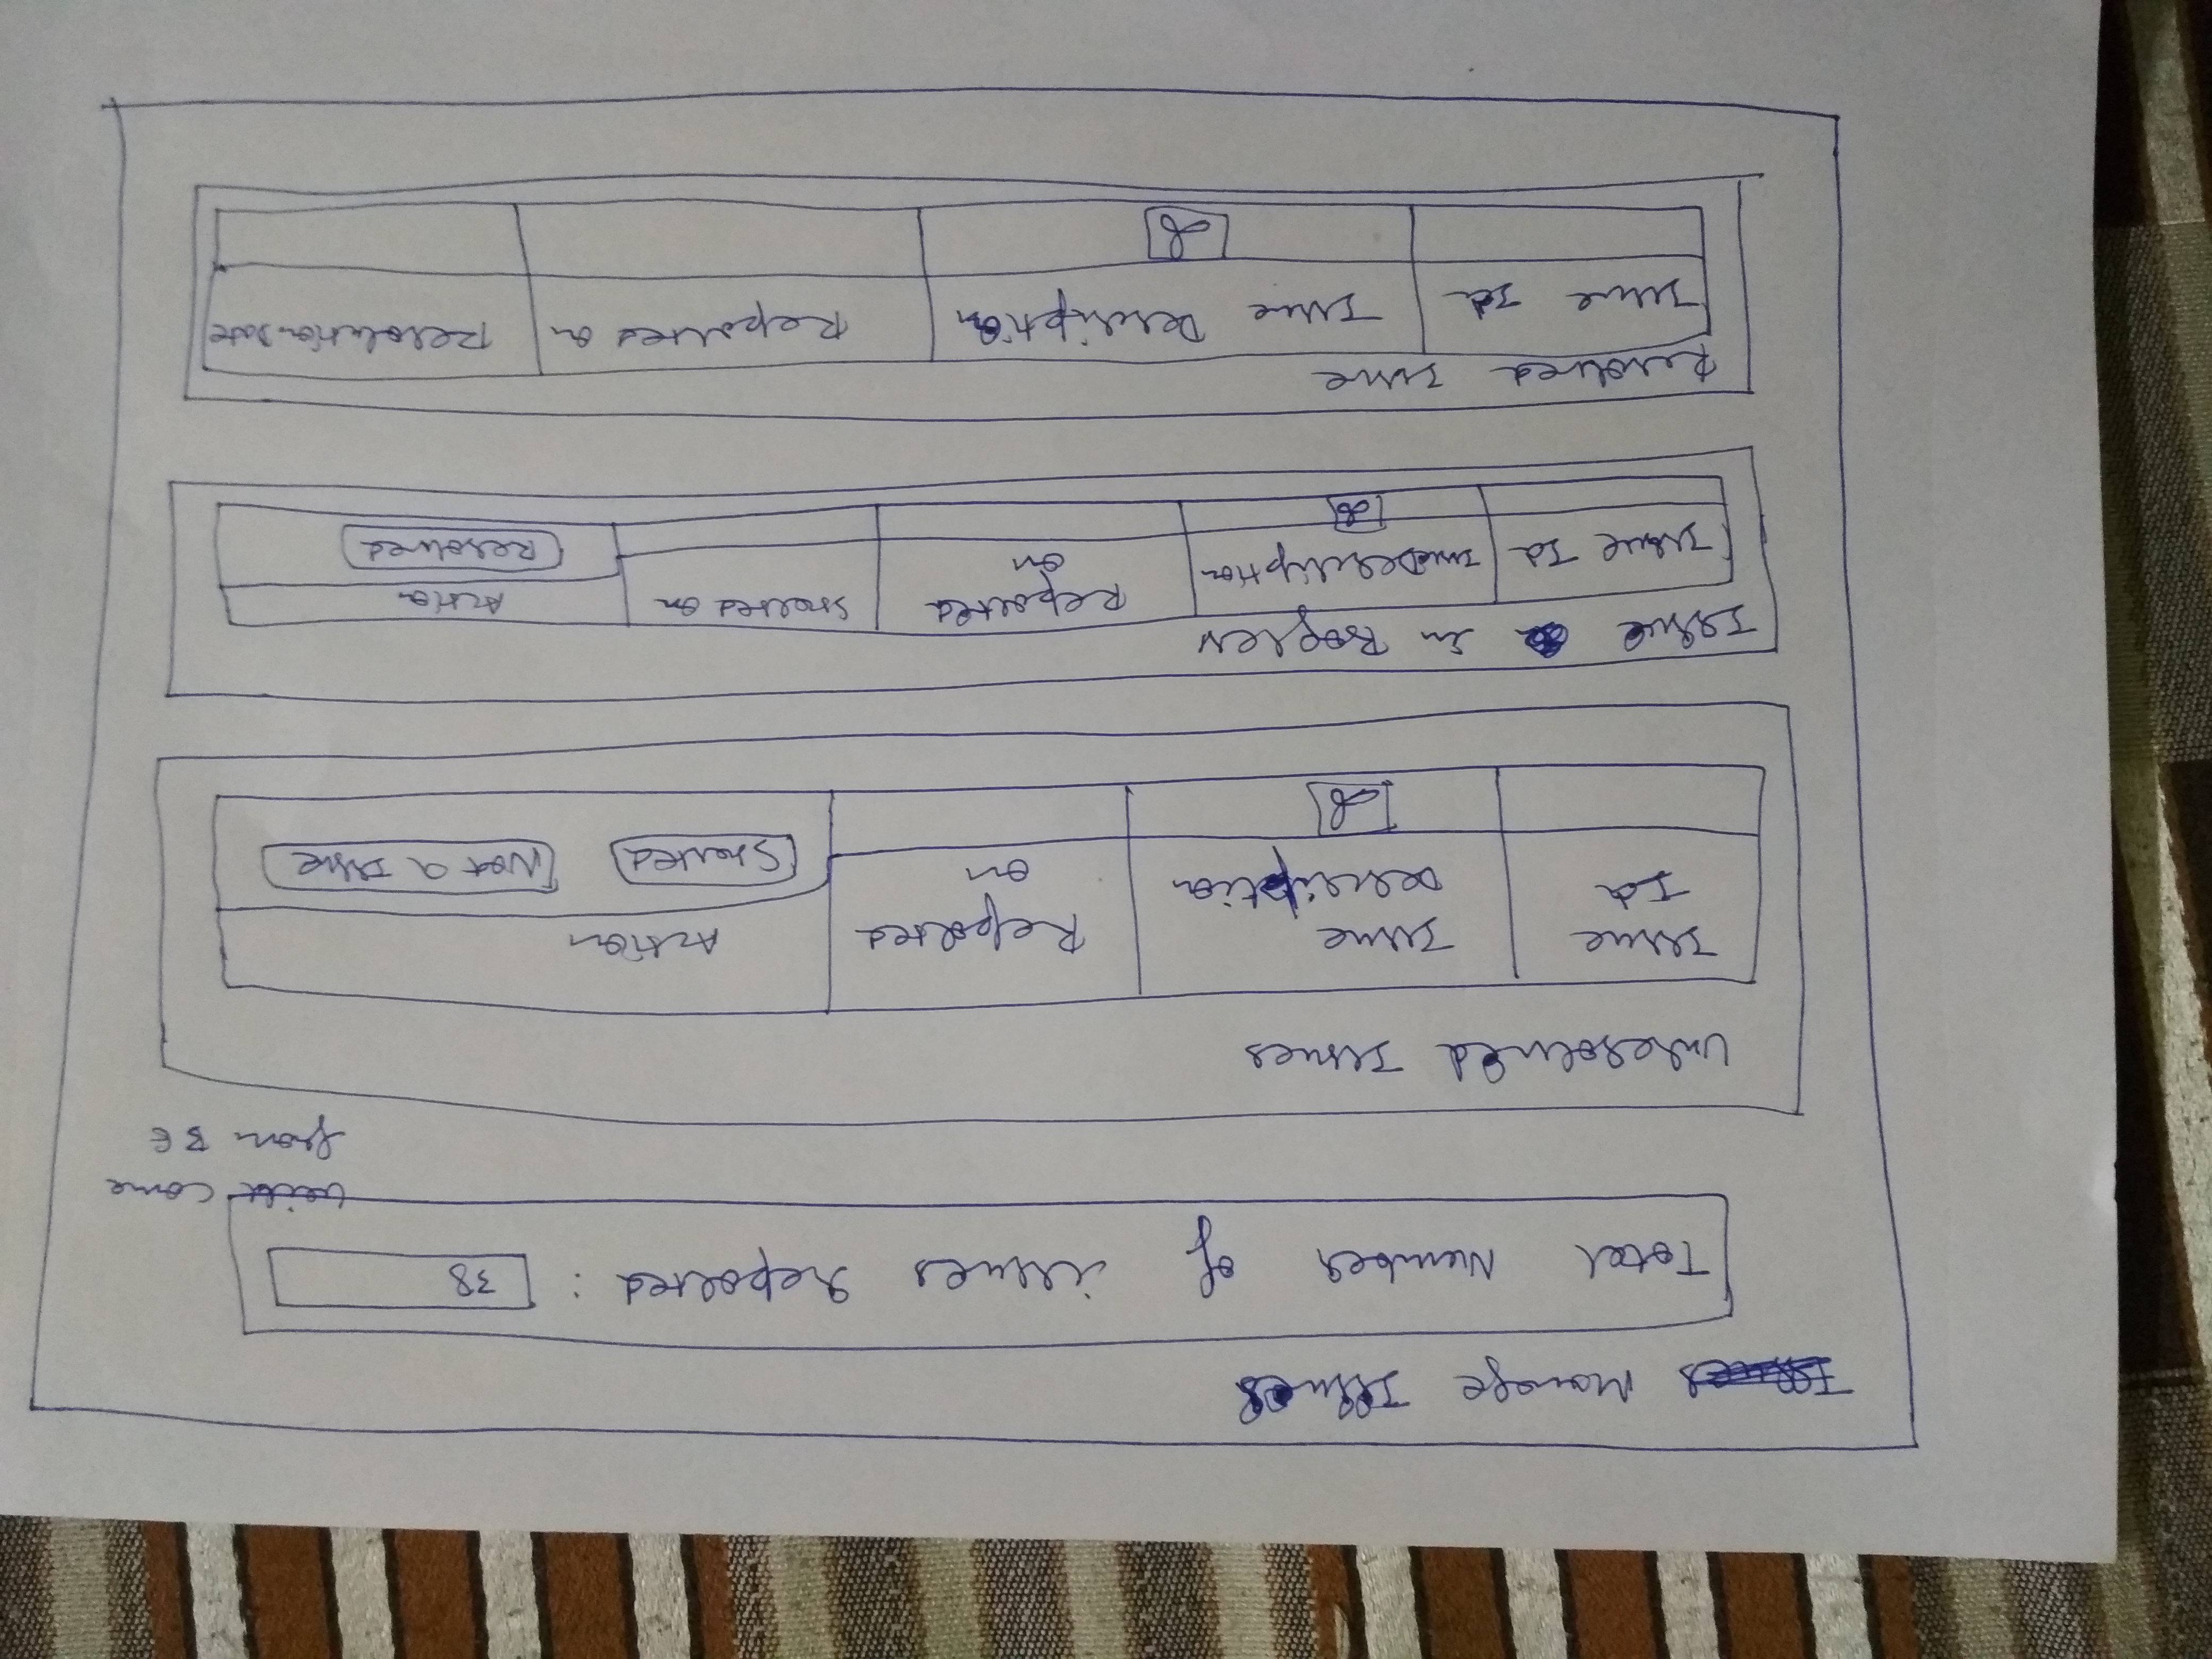 Manage Issues
Total Number of issues reported : 38
come
from BE
Unresolved Issues
Issue Id
Issue Description
Reported on
Action
Started
Not a Issue
Issue in Progress
Issue Id
Issue Description
Reported on
Started on
Action
Resolved
Resolved Issue
Issue Id
Issue Description
Reported on
Resolution Date